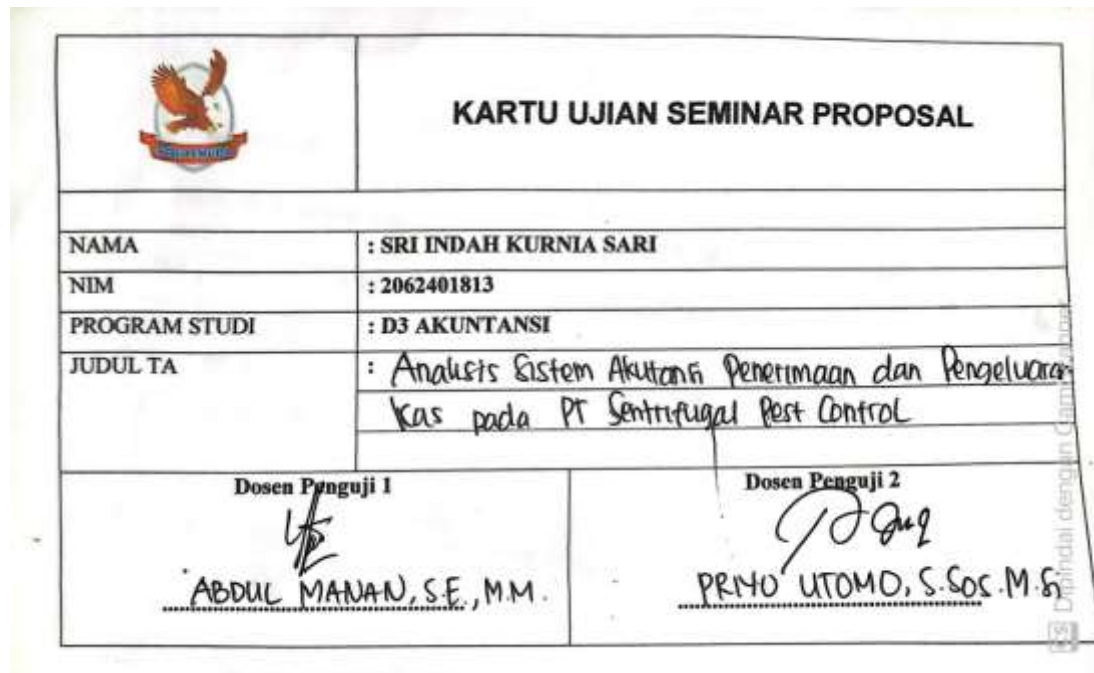 KARTU UJIAN SEMINAR PROPOSAL
NAMA : SRI INDAH KURNIA SARI
NIM : 2062401813
PROGRAM STUDI : D3 AKUNTANSI
JUDUL TA : Analisis Sistem Akutansi Penerimaan dan Pengeluaran
Kas pada PT Sentrifugal Pest Control
Dosen Penguji 1
ABDUL MANAN, S.E., M.M.
Dosen Penguji 2
PRIYO UTOMO, S.Sos.M.Si
CS Dipindai dengan CamScanner